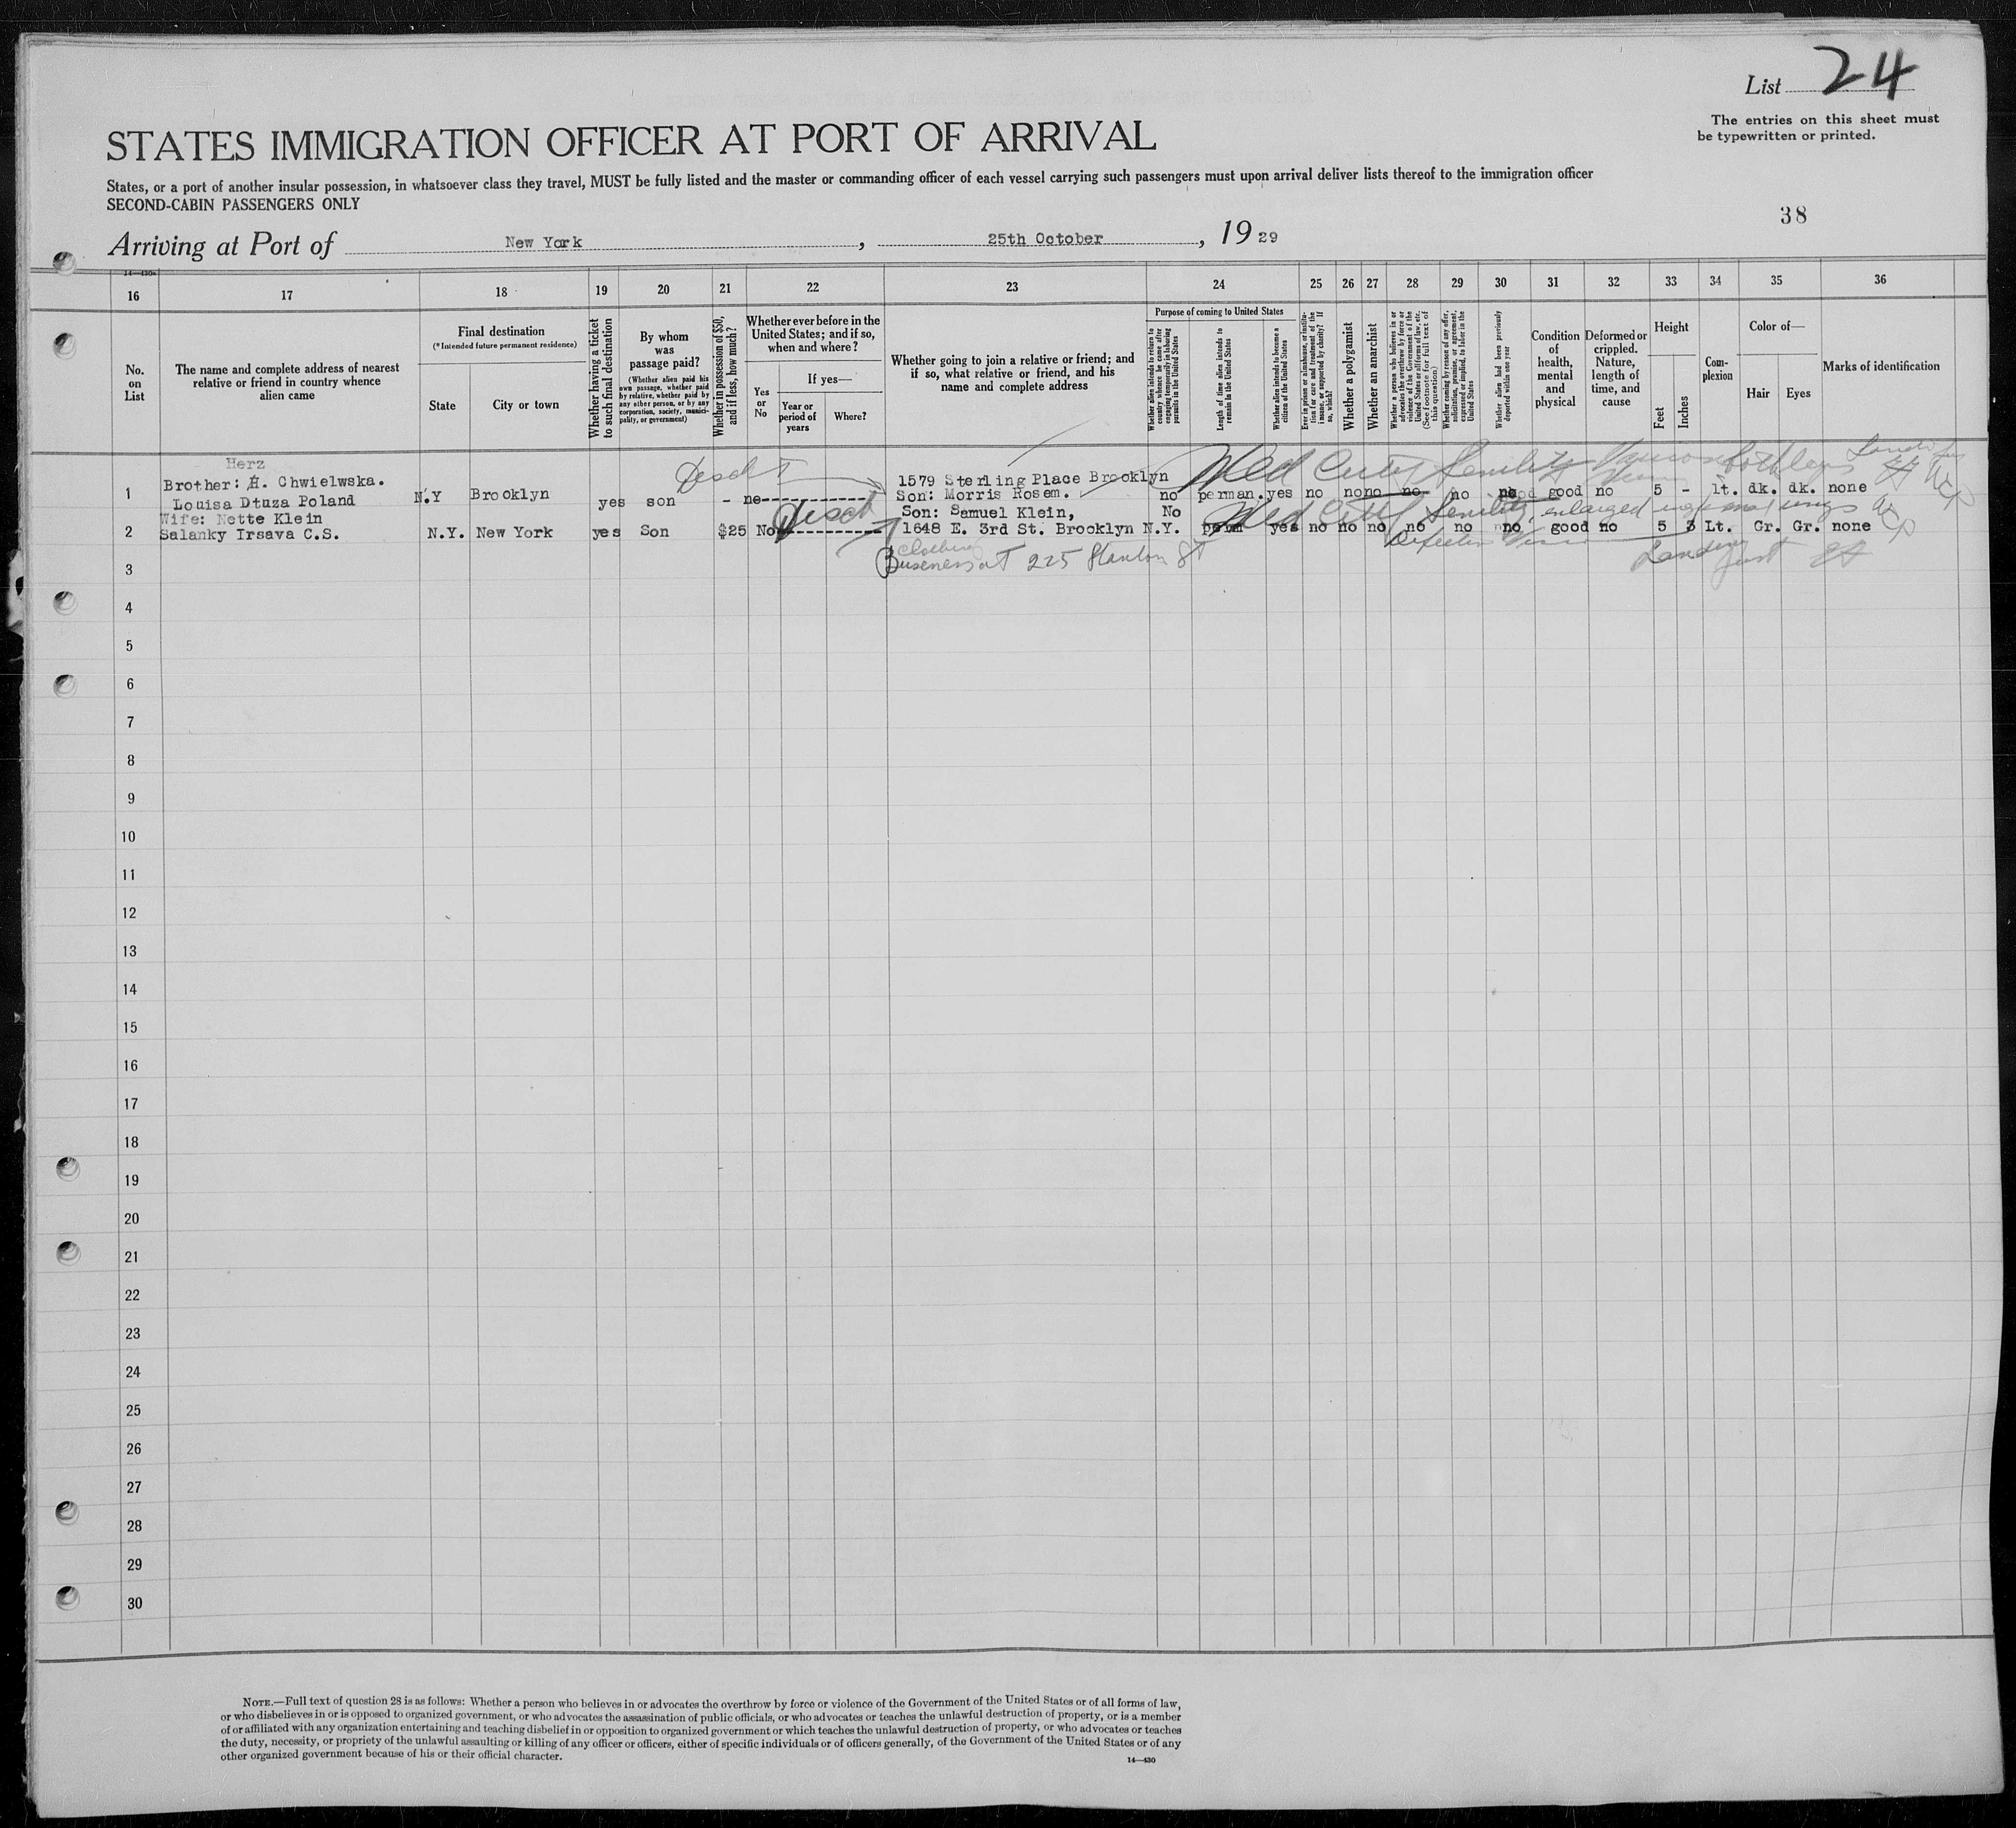 List 24
The entries on this sheet must
be typewritten or printed.
STATES IMMIGRATION OFFICER AT PORT OF ARRIVAL
States, or a port of another insular possession, in whatsoever class they travel, MUST be fully listed and the master or commanding officer of each vessel carrying such passengers must upon arrival deliver lists thereof to the immigration officer
SECOND-CABIN PASSENGERS ONLY
38
Arriving at Port of New York, 25th October, 1929
16 17 18 19 20 21 22 23 24 25 26 27 28 29 30 31 32 33 34 35 36
No.
on
List
The name and complete address of nearest
relative or friend in country whence
alien came
Final destination
(*Intended future permanent residence)
State
City or town
Whether having a ticket
to such final destination
By whom
was
passage paid?
(Whether alien paid his
own passage, whether paid
by relative, whether paid by
any other person, or by any
corporation, society, munici-
pality, or government)
Whether in possession of $50,
and if less, how much?
Whether ever before in the
United States; and if so,
when and where?
Yes
or
No
If yes—
Year or
period of
years
Where?
Whether going to join a relative or friend; and
if so, what relative or friend, and his
name and complete address
Purpose of coming to United States
Whether alien intends to return to
country whence he came after
engaging temporarily in laboring
pursuits in the United States
Length of time alien intends to
remain in the United States
Whether alien intends to become a
citizen of the United States
Ever in prison or almshouse, or institu-
tion for care and treatment of the
insane, or supported by charity? If
so, which?
Whether a polygamist
Whether an anarchist
Whether a person who believes in or
advocates the overthrow by force or
violence of the Government of the
United States or all forms of law, etc.
(See footnote for full text of
this question)
Whether coming by reason of any offer,
solicitation, promise, or agreement,
expressed or implied, to labor in the
United States
Whether alien had been previously
deported within one year
Condition
of
health,
mental
and
physical
Deformed or
crippled.
Nature,
length of
time, and
cause
Height
Feet
Inches
Com-
plexion
Color of—
Hair
Eyes
Marks of identification
Herz
1 Brother: H. Chwielwska. N.Y Brooklyn yes son - no 1579 Sterling Place Brooklyn
Louisa Dtuza Poland Son: Morris Rosem. no perman. yes no no no no no no good no 5 - lt. dk. dk. none
Med Cert Senility
2 Wife: Nette Klein Son: Samuel Klein, No
Salanky Irsava C.S. N.Y. New York yes Son $25 No 1648 E. 3rd St. Brooklyn N.Y. perm yes no no no no no no good no 5 3 Lt. Gr. Gr. none
Med Cert Senility, enlarged
Defective Vision
clothing
Buseness at 225 Stanton St
3
4
5
6
7
8
9
10
11
12
13
14
15
16
17
18
19
20
21
22
23
24
25
26
27
28
29
30
NOTE.—Full text of question 28 is as follows: Whether a person who believes in or advocates the overthrow by force or violence of the Government of the United States or of all forms of law,
or who disbelieves in or is opposed to organized government, or who advocates the assassination of public officials, or who advocates or teaches the unlawful destruction of property, or is a member
of or affiliated with any organization entertaining and teaching disbelief in or opposition to organized government or which teaches the unlawful destruction of property, or who advocates or teaches
the duty, necessity, or propriety of the unlawful assaulting or killing of any officer or officers, either of specific individuals or of officers generally, of the Government of the United States or of any
other organized government because of his or their official character.
14—430